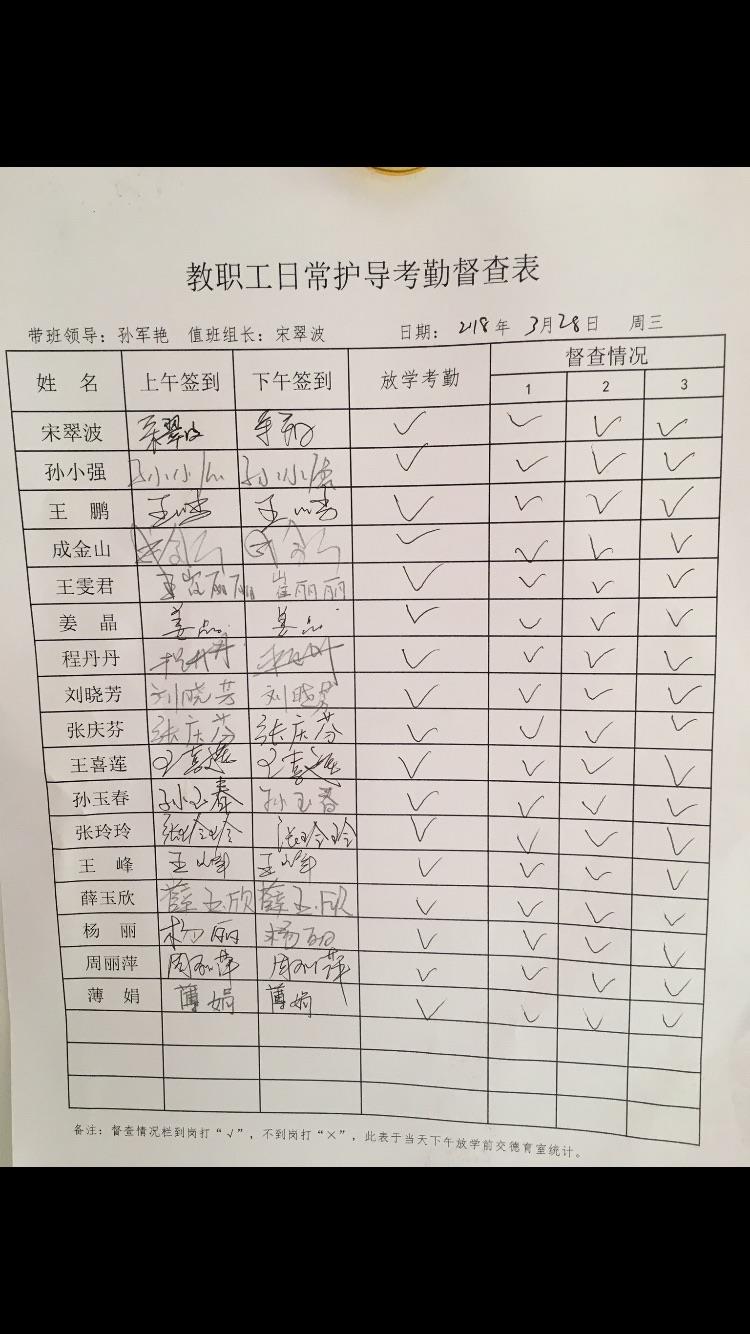 教职工日常护导考勤督查表
带班领导：孙军艳 值班组长：宋翠波 日期：218年 3月28日 周三
姓 名 上午签到 下午签到 放学考勤 督查情况
1 2 3
宋翠波 宋翠波 ✓ ✓ ✓ ✓
孙小强 孙小强 孙小强 ✓ ✓ ✓ ✓
王 鹏 ✓ ✓ ✓ ✓
成金山 成金山 成金山 ✓ ✓ ✓ ✓
王雯君 崔丽丽 崔丽丽 ✓ ✓ ✓ ✓
姜 晶 姜晶 姜晶 ✓ ✓ ✓ ✓
程丹丹 程丹丹 程丹丹 ✓ ✓ ✓ ✓
刘晓芳 刘晓芳 刘晓芳 ✓ ✓ ✓ ✓
张庆芬 张庆芬 张庆芬 ✓ ✓ ✓ ✓
王喜莲 王喜莲 王喜莲 ✓ ✓ ✓ ✓
孙玉春 孙玉春 孙玉春 ✓ ✓ ✓ ✓
张玲玲 张玲玲 张玲玲 ✓ ✓ ✓ ✓
王 峰 王峰 王峰 ✓ ✓ ✓ ✓
薛玉欣 薛玉欣 薛玉欣 ✓ ✓ ✓ ✓
杨 丽 杨丽 杨丽 ✓ ✓ ✓ ✓
周丽萍 周丽萍 周丽萍 ✓ ✓ ✓ ✓
薄 娟 薄娟 薄娟 ✓ ✓ ✓ ✓
备注：督查情况栏到岗打“√”，不到岗打“×”，此表于当天下午放学前交德育室统计。